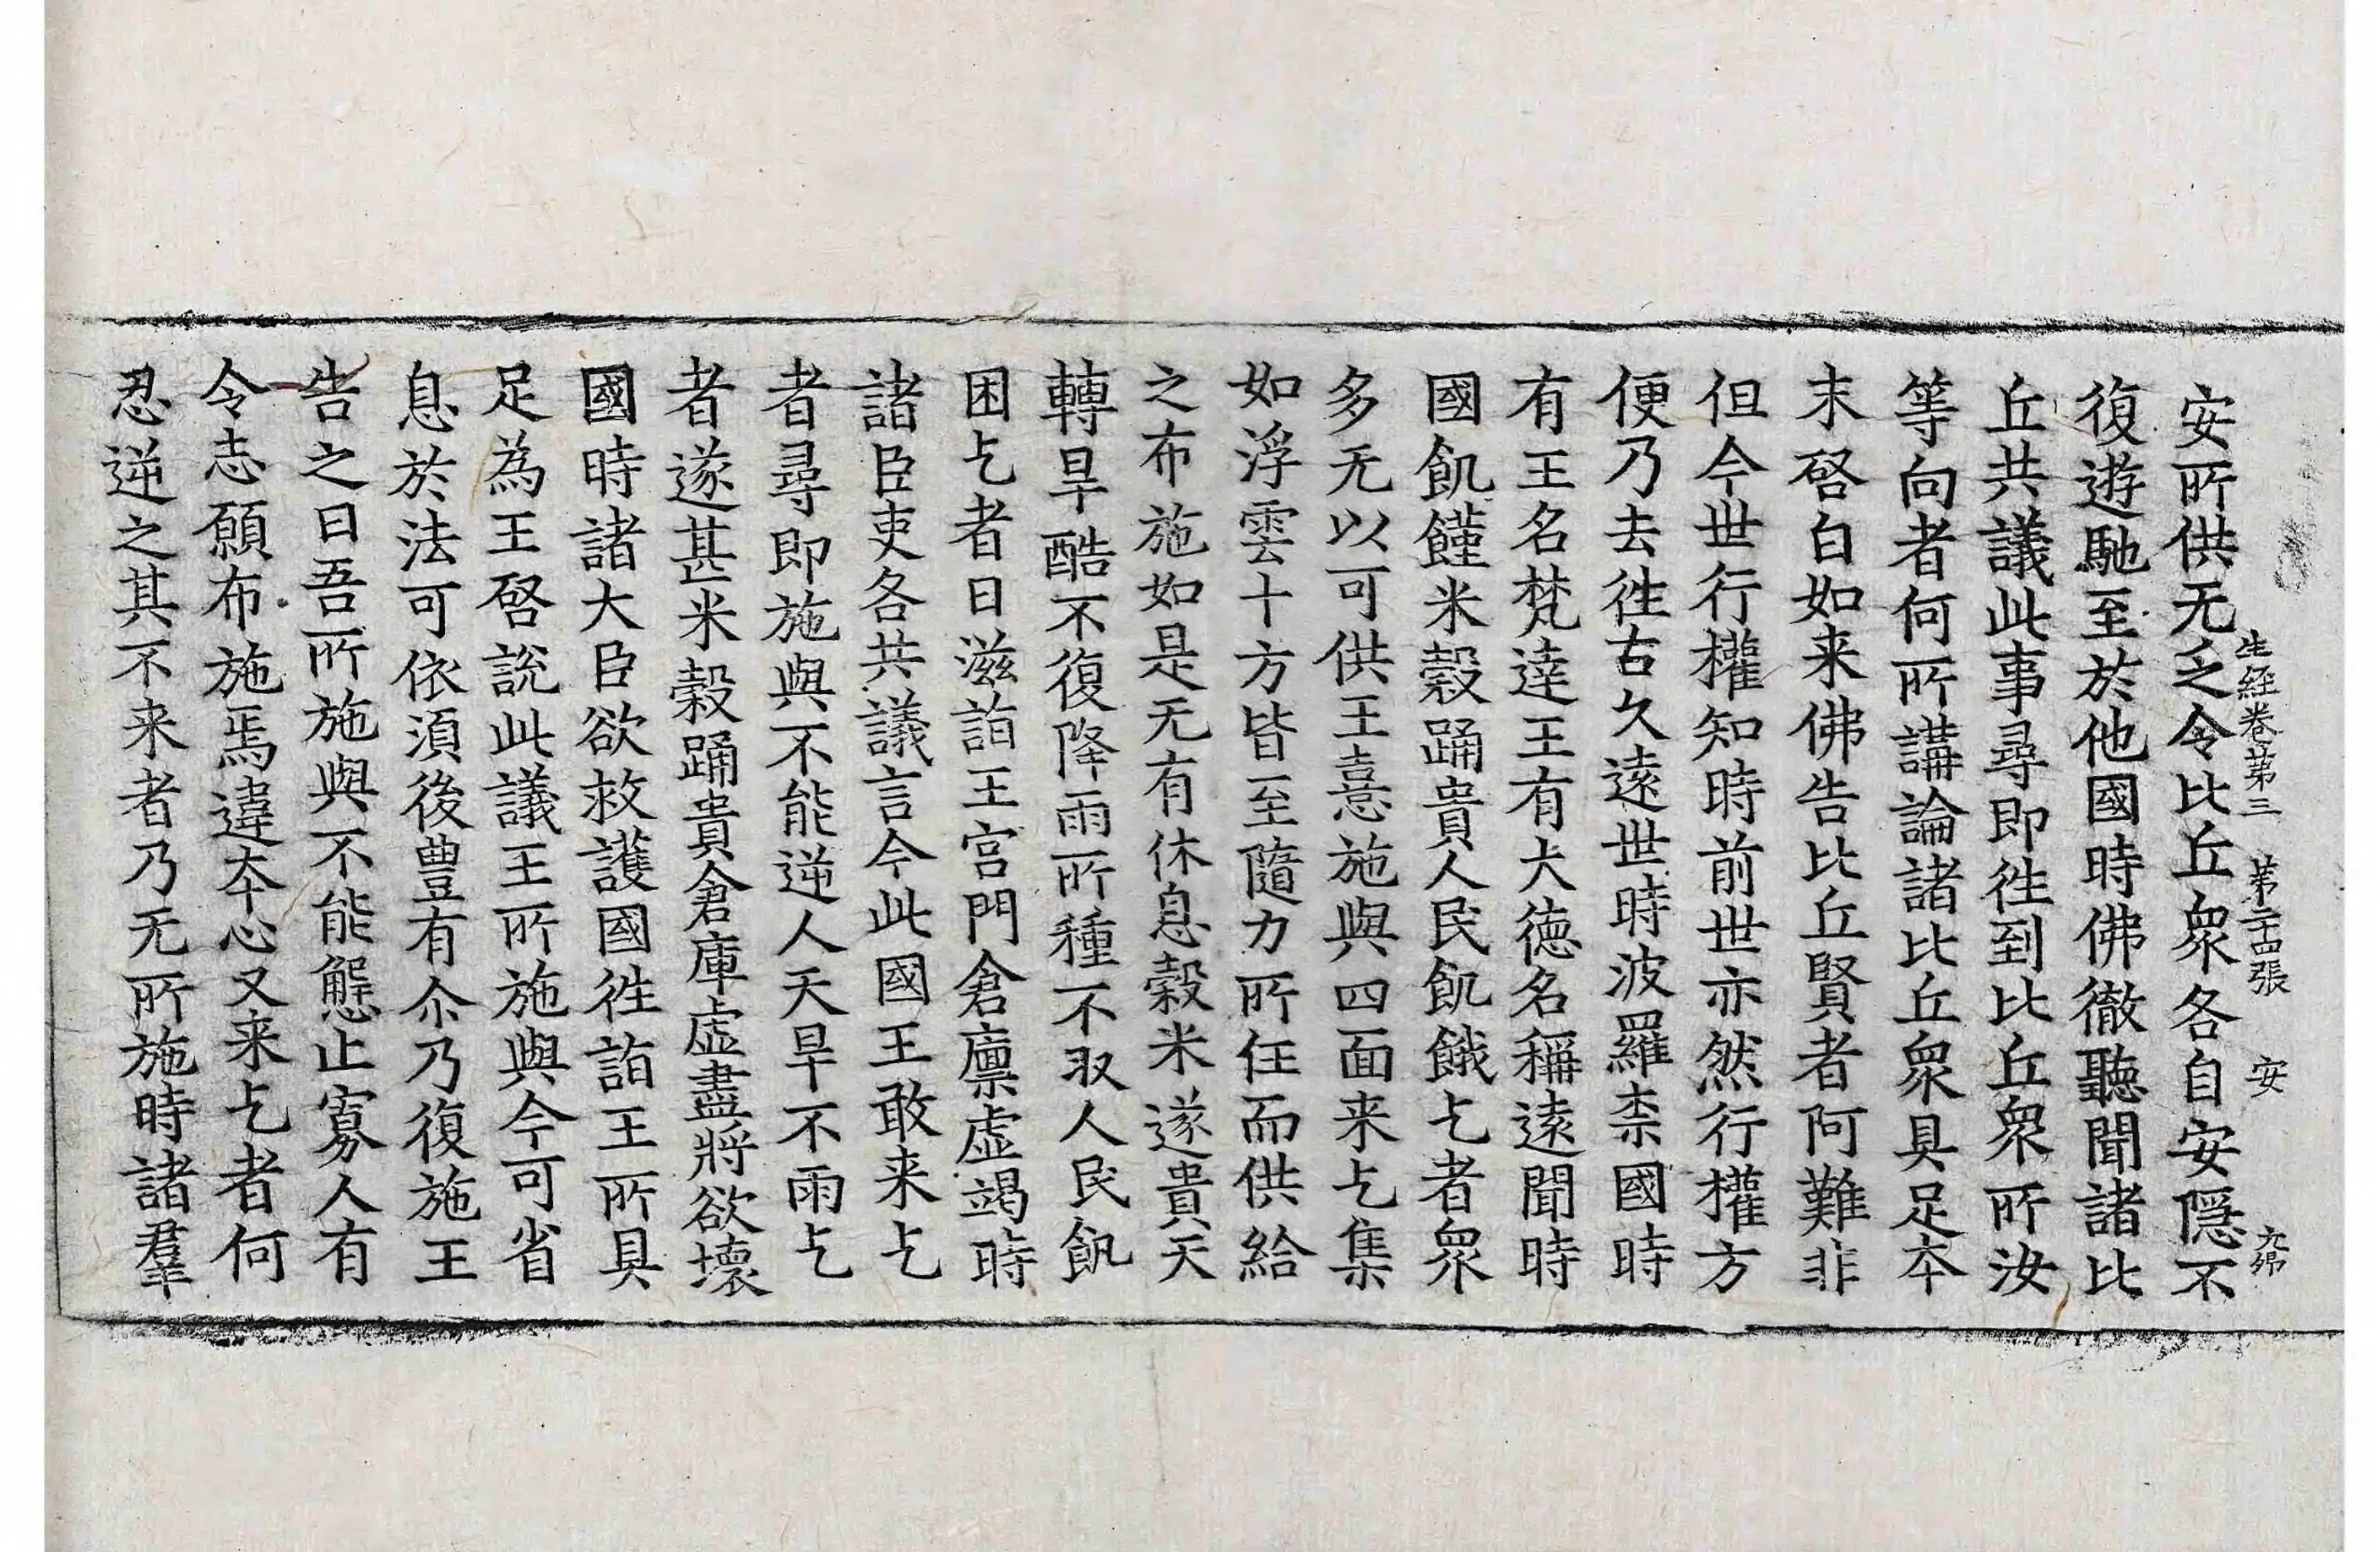 生経卷第三 第二十四張 安 九㢧
安所供无乏令比丘衆各自安隱不
復遊馳至於他國時佛徹聽聞諸比
丘共議此事尋即徃到比丘衆所汝
等向者何所講論諸比丘衆具足夲
末啓白如来佛告比丘賢者阿難非
但今世行權知時前世亦然行權方
便乃去徃古久遠世時波羅柰國時
有王名梵達王有大德名稱遠聞時
國飢饉米穀踊貴人民飢餓乞者衆
多无以可供王憙施與四面来乞集
如浮雲十方皆至隨力所任而供給
之布施如是无有休息穀米遂貴天
轉旱酷不復降雨所種不収人民飢
困乞者日滋詣王宮門倉廪虚竭時
諸臣吏各共議言今此國王敢来乞
者尋即施與不能逆人天旱不雨乞
者遂甚米穀踊貴倉庫虚盡將欲壞
國時諸大臣欲救護國徃詣王所具
足為王啓說此議王所施與今可省
息於法可依須後豊有尒乃復施王
告之曰吾所施與不能懈止寡人有
令志願布施焉違夲心又来乞者何
忍逆之其不来者乃无所施時諸羣